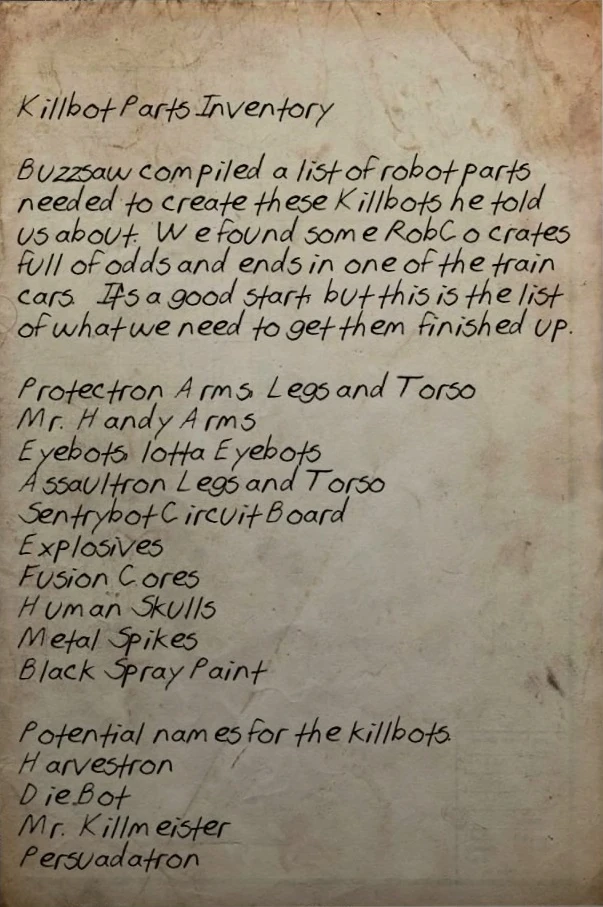 Killbot Parts Inventory
Buzzsaw compiled a list of robot parts
needed to create these Killbots he told
us about. We found some RobCo crates
full of odds and ends in one of the train
cars. It's a good start, but this is the list
of what we need to get them finished up.
Protectron Arms, Legs and Torso
Mr. Handy Arms
Eyebots, lotta Eyebots
Assaultron Legs and Torso
Sentrybot Circuit Board
Explosives
Fusion Cores
Human Skulls
Metal Spikes
Black Spray Paint
Potential names for the killbots.
Harvestron
DieBot
Mr. Killmeister
Persuadatron